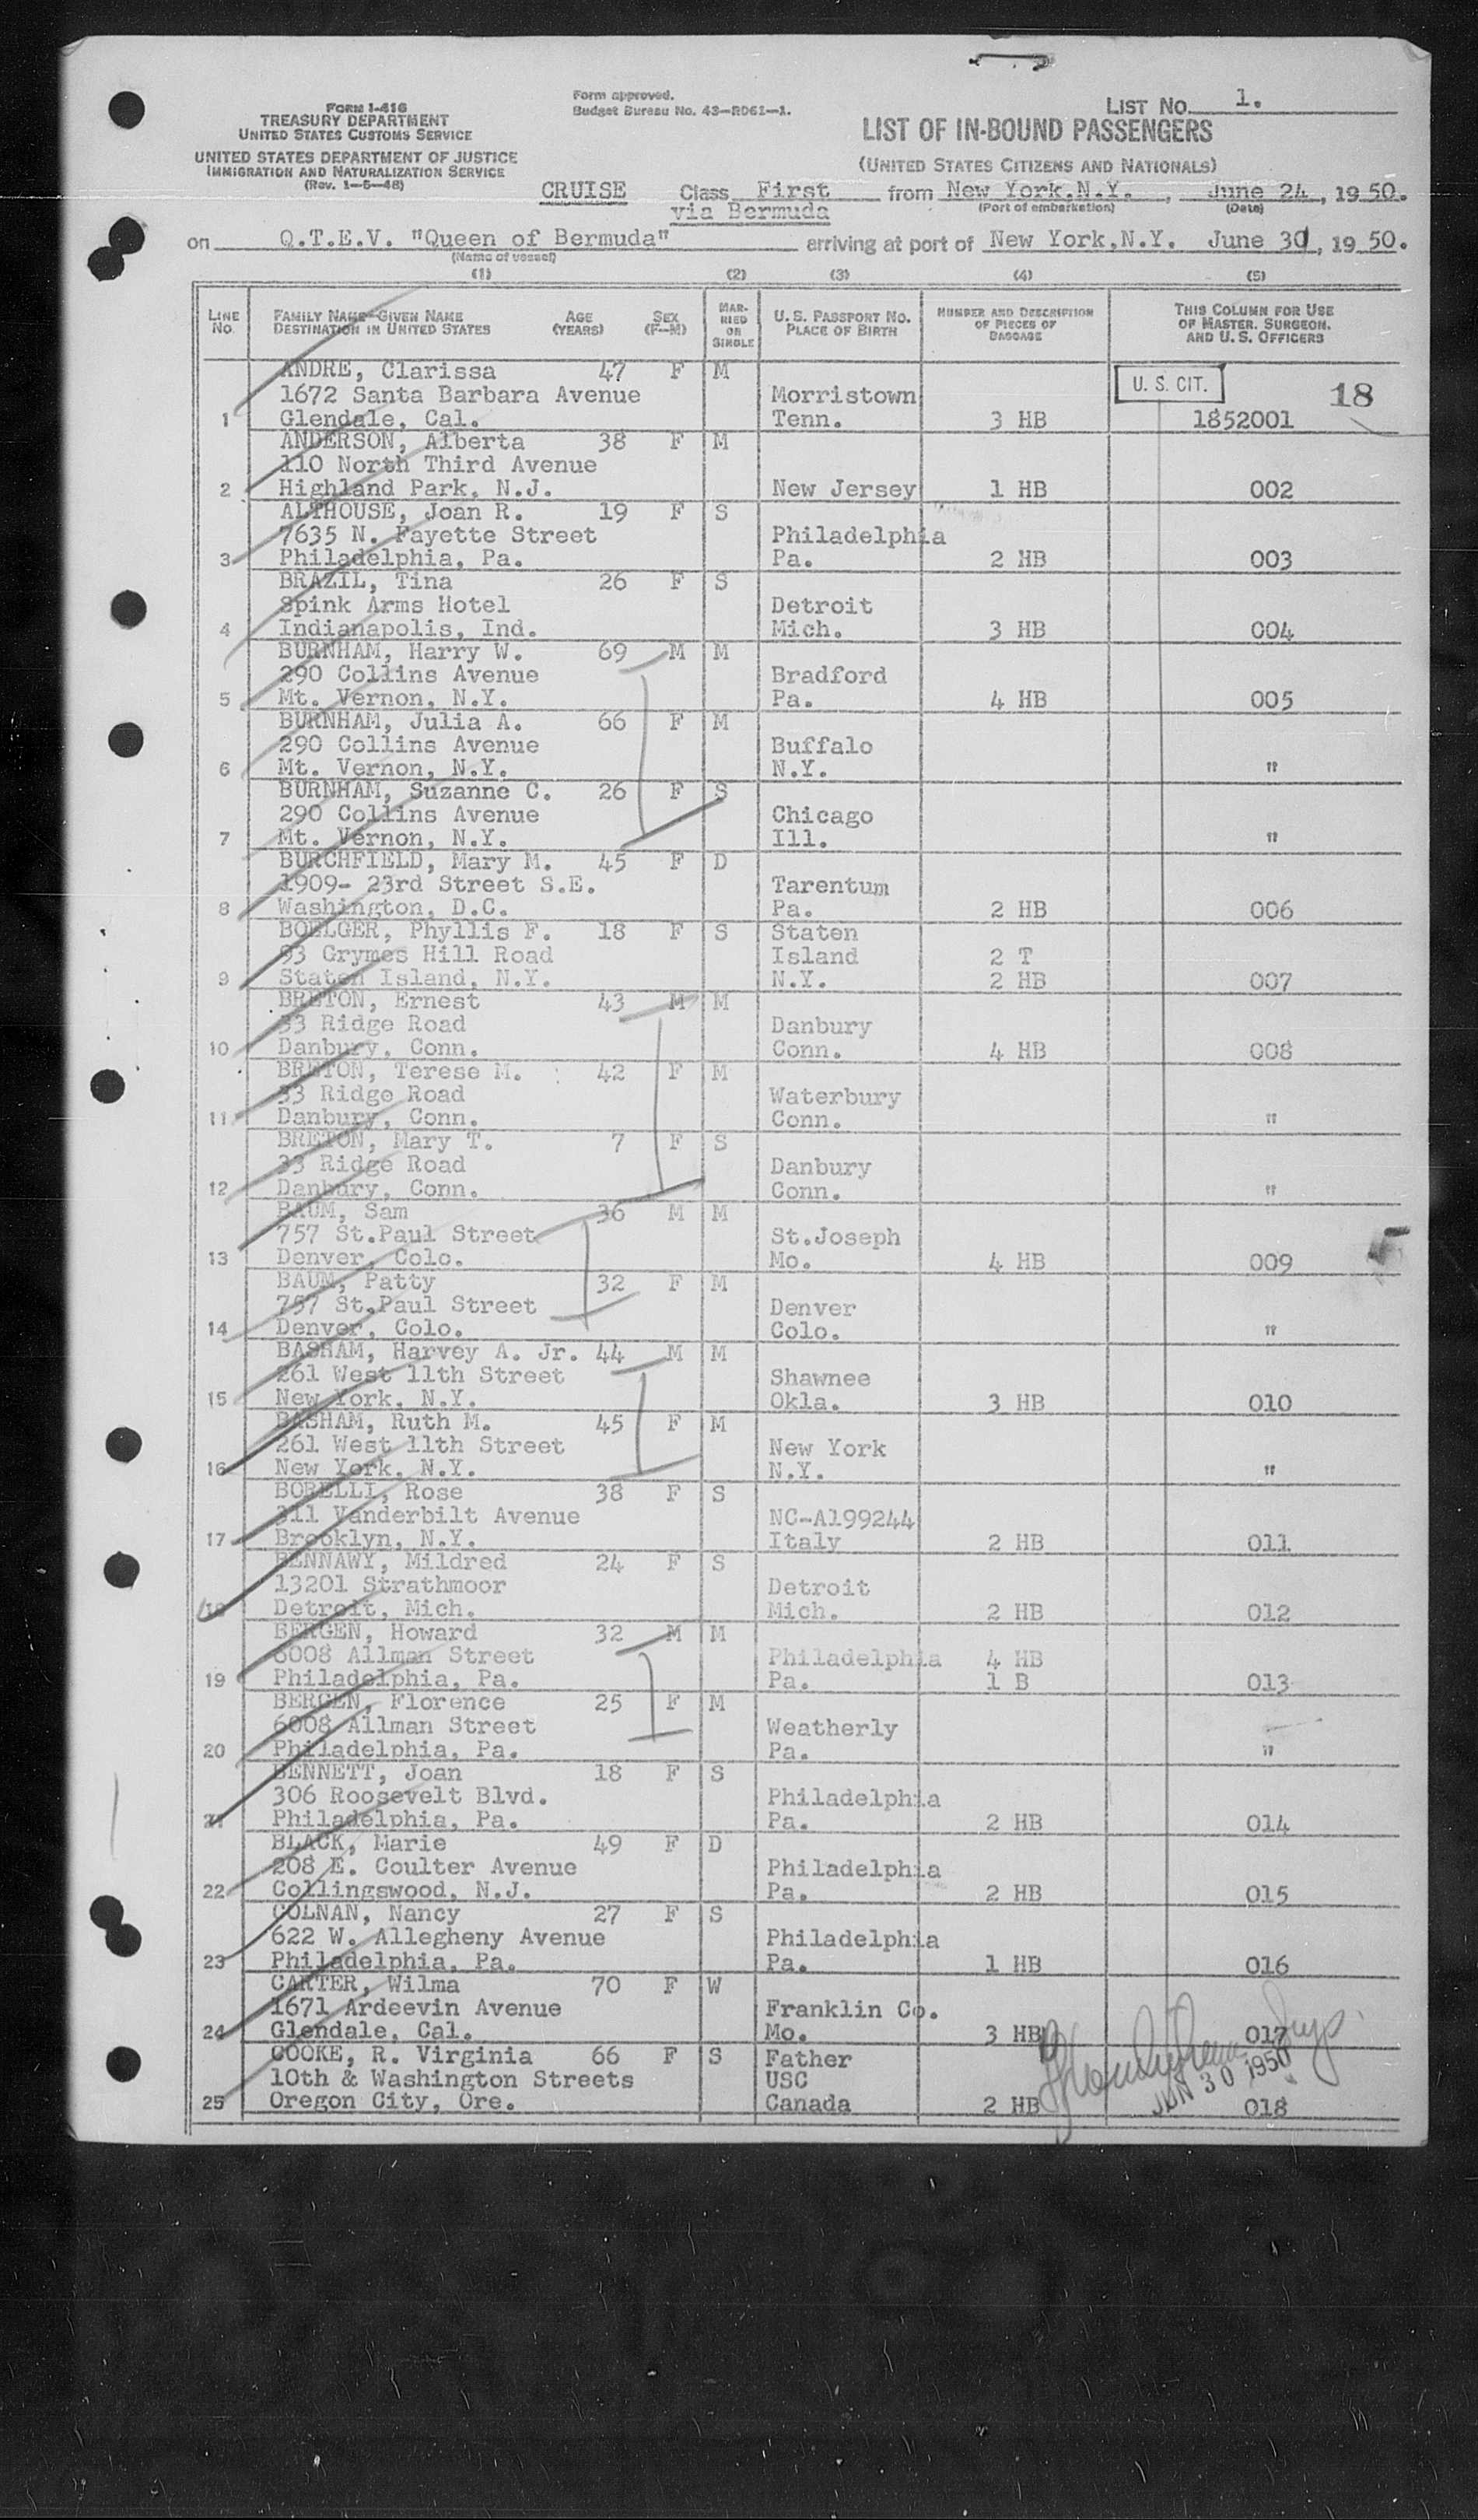 FORM I-416
TREASURY DEPARTMENT
UNITED STATES CUSTOMS SERVICE
UNITED STATES DEPARTMENT OF JUSTICE
IMMIGRATION AND NATURALIZATION SERVICE
(Rev. 1-5-48)
Form approved.
Budget Bureau No. 43-R061-1.
LIST No. 1.
LIST OF IN-BOUND PASSENGERS
(UNITED STATES CITIZENS AND NATIONALS)
CRUISE Class First from New York,N.Y., June 24, 1950.
via Bermuda (Port of embarkation) (Date)
on Q.T.E.V. "Queen of Bermuda" arriving at port of New York,N.Y. June 30, 1950.
(Name of vessel)
(1) (2) (3) (4) (5)
LINE No. FAMILY NAME—GIVEN NAME DESTINATION IN UNITED STATES AGE (YEARS) SEX (F—M) MARRIED OR SINGLE U. S. PASSPORT NO. PLACE OF BIRTH NUMBER AND DESCRIPTION OF PIECES OF BAGGAGE THIS COLUMN FOR USE OF MASTER, SURGEON, AND U. S. OFFICERS
ANDRE, Clarissa 47 F M U. S. CIT. 18
1672 Santa Barbara Avenue Morristown
1 Glendale, Cal. Tenn. 3 HB 1852001
ANDERSON, Alberta 38 F M
110 North Third Avenue
2 Highland Park, N.J. New Jersey 1 HB 002
ALTHOUSE, Joan R. 19 F S
7635 N. Fayette Street Philadelphia
3 Philadelphia, Pa. Pa. 2 HB 003
BRAZIL, Tina 26 F S
Spink Arms Hotel Detroit
4 Indianapolis, Ind. Mich. 3 HB 004
BURNHAM, Harry W. 69 M M
290 Collins Avenue Bradford
5 Mt. Vernon, N.Y. Pa. 4 HB 005
BURNHAM, Julia A. 66 F M
290 Collins Avenue Buffalo
6 Mt. Vernon, N.Y. N.Y. "
BURNHAM, Suzanne C. 26 F S
290 Collins Avenue Chicago
7 Mt. Vernon, N.Y. Ill. "
BURCHFIELD, Mary M. 45 F D
1909- 23rd Street S.E. Tarentum
8 Washington, D.C. Pa. 2 HB 006
BOELGER, Phyllis F. 18 F S Staten
93 Grymes Hill Road Island 2 T
9 Staten Island, N.Y. N.Y. 2 HB 007
BRETON, Ernest 43 M M
33 Ridge Road Danbury
10 Danbury, Conn. Conn. 4 HB 008
BRETON, Terese M. 42 F M
33 Ridge Road Waterbury
11 Danbury, Conn. Conn. "
BRETON, Mary T. 7 F S
33 Ridge Road Danbury
12 Danbury, Conn. Conn. "
BAUM, Sam 36 M M
757 St.Paul Street St.Joseph
13 Denver, Colo. Mo. 4 HB 009
BAUM, Patty 32 F M
757 St.Paul Street Denver
14 Denver, Colo. Colo. "
BASHAM, Harvey A. Jr. 44 M M
261 West 11th Street Shawnee
15 New York, N.Y. Okla. 3 HB 010
BASHAM, Ruth M. 45 F M
261 West 11th Street New York
16 New York, N.Y. N.Y. "
BORELLI, Rose 38 F S
311 Vanderbilt Avenue NC-A199244
17 Brooklyn, N.Y. Italy 2 HB 011
BENNAWY, Mildred 24 F S
13201 Strathmoor Detroit
18 Detroit, Mich. Mich. 2 HB 012
BERGEN, Howard 32 M M
6008 Allman Street Philadelphia 4 HB
19 Philadelphia, Pa. Pa. 1 B 013
BERGEN, Florence 25 F M
6008 Allman Street Weatherly
20 Philadelphia, Pa. Pa. "
BENNETT, Joan 18 F S
306 Roosevelt Blvd. Philadelphia
21 Philadelphia, Pa. Pa. 2 HB 014
BLACK, Marie 49 F D
208 E. Coulter Avenue Philadelphia
22 Collingswood, N.J. Pa. 2 HB 015
COLNAN, Nancy 27 F S
622 W. Allegheny Avenue Philadelphia
23 Philadelphia, Pa. Pa. 1 HB 016
CARTER, Wilma 70 F W
1671 Ardeevin Avenue Franklin Co.
24 Glendale, Cal. Mo. 3 HB 017
COOKE, R. Virginia 66 F S Father
10th & Washington Streets USC JUN 30 1950
25 Oregon City, Ore. Canada 2 HB 018